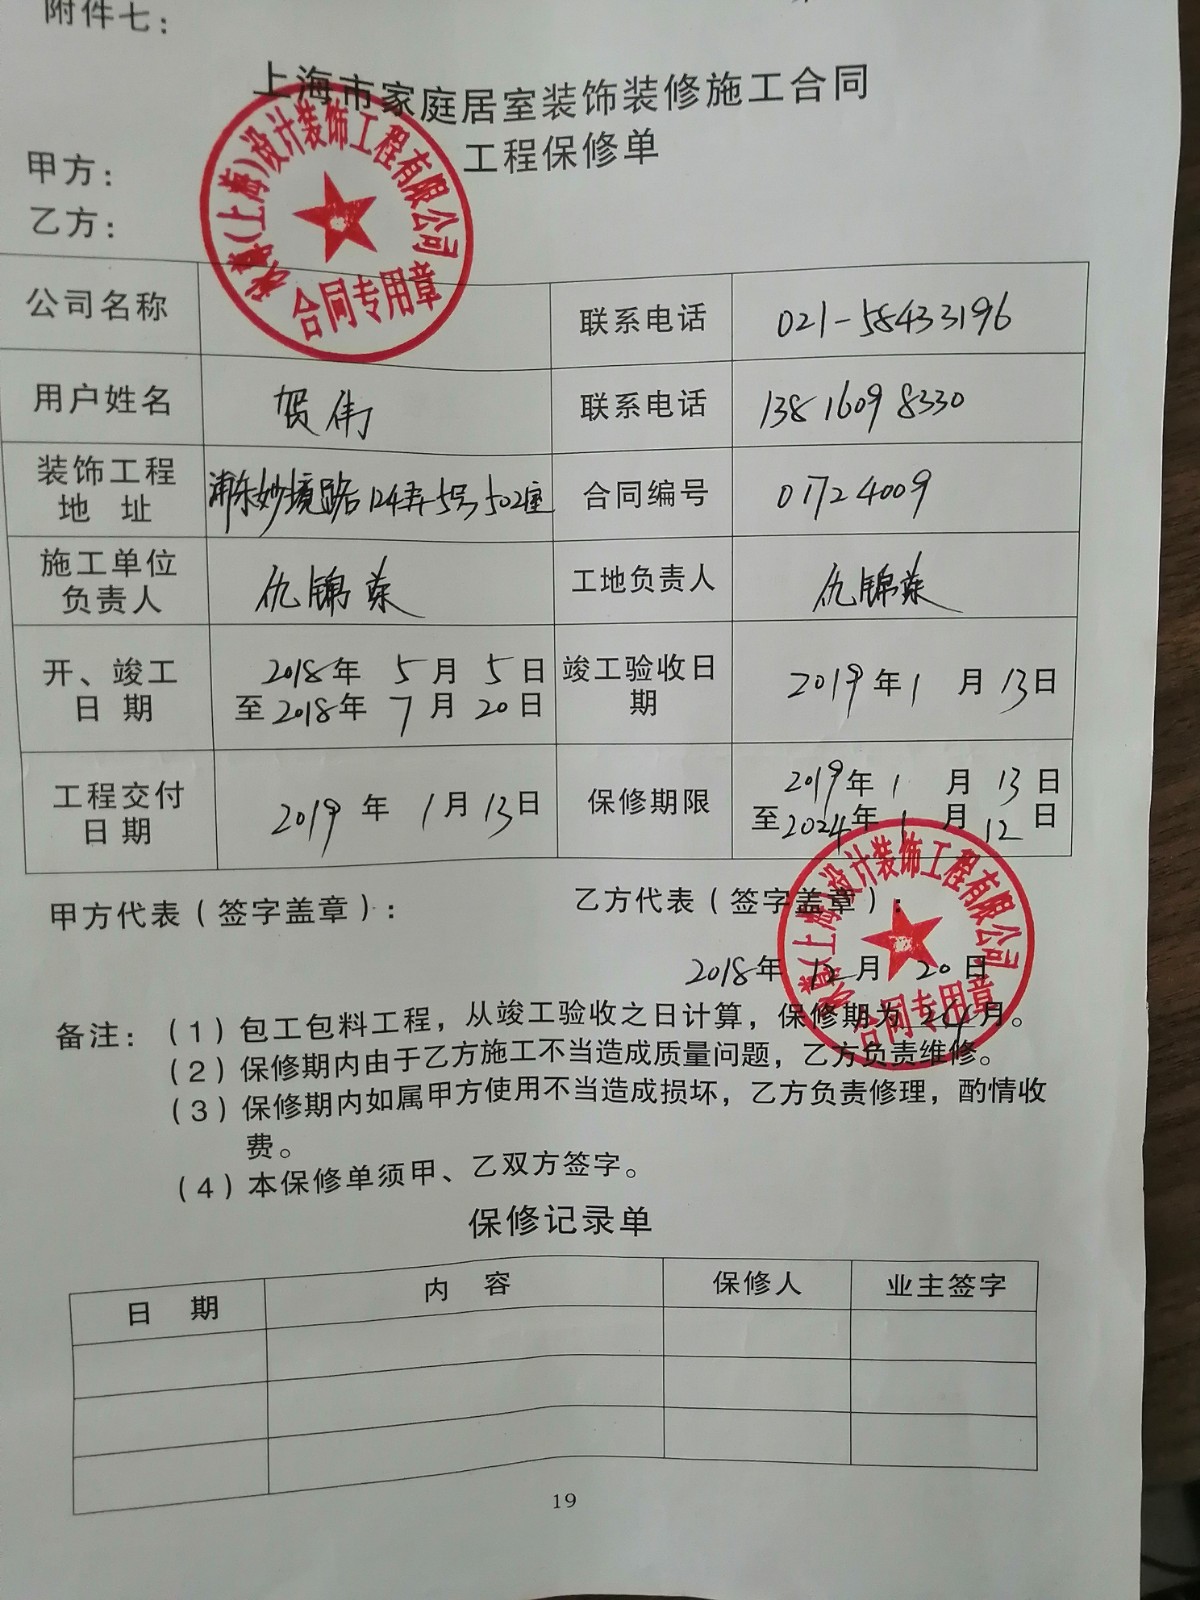 附件七：
上海市家庭居室装饰装修施工合同
工程保修单
甲方：
乙方：
（上海）设计装饰工程有限公司
合同专用章
公司名称 联系电话 021-58433196
用户姓名 贺伟 联系电话 13816098330
装饰工程地 址 浦东妙境路124弄5号502室 合同编号 01724009
施工单位负责人 仇锦荣 工地负责人 仇锦荣
开、竣工日 期 2018年 5月 5日 竣工验收日期 2019年1月13日
至2018年 7月 20日
工程交付日 期 2019年 1月13日 保修期限 2019年 1月 13日
至2024年 1月 12日
甲方代表（签字盖章）： 乙方代表（签字盖章）：
（上海）设计装饰工程有限公司
合同专用章
2018年 12月 20日
备注：（1）包工包料工程，从竣工验收之日计算，保修期为 月。
（2）保修期内由于乙方施工不当造成质量问题，乙方负责维修。
（3）保修期内如属甲方使用不当造成损坏，乙方负责修理，酌情收
费。
（4）本保修单须甲、乙双方签字。
保修记录单
日 期 内 容 保修人 业主签字
19